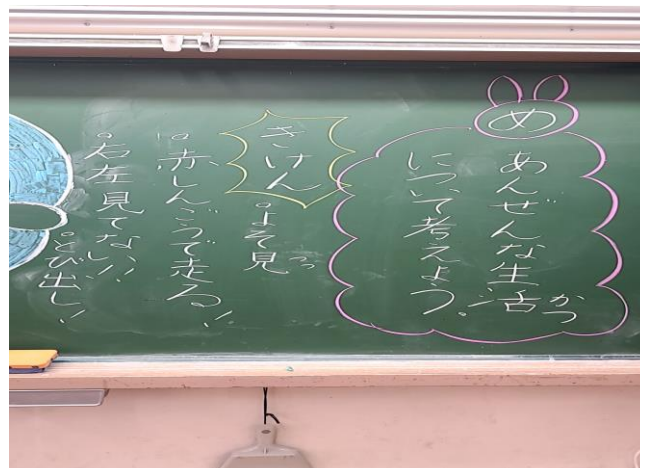 め
あんぜんな生活
かつ
について考えよう。
きけん
。よそ見
。赤しんごうで走る!!
。右左見てない!!
。とび出し!!